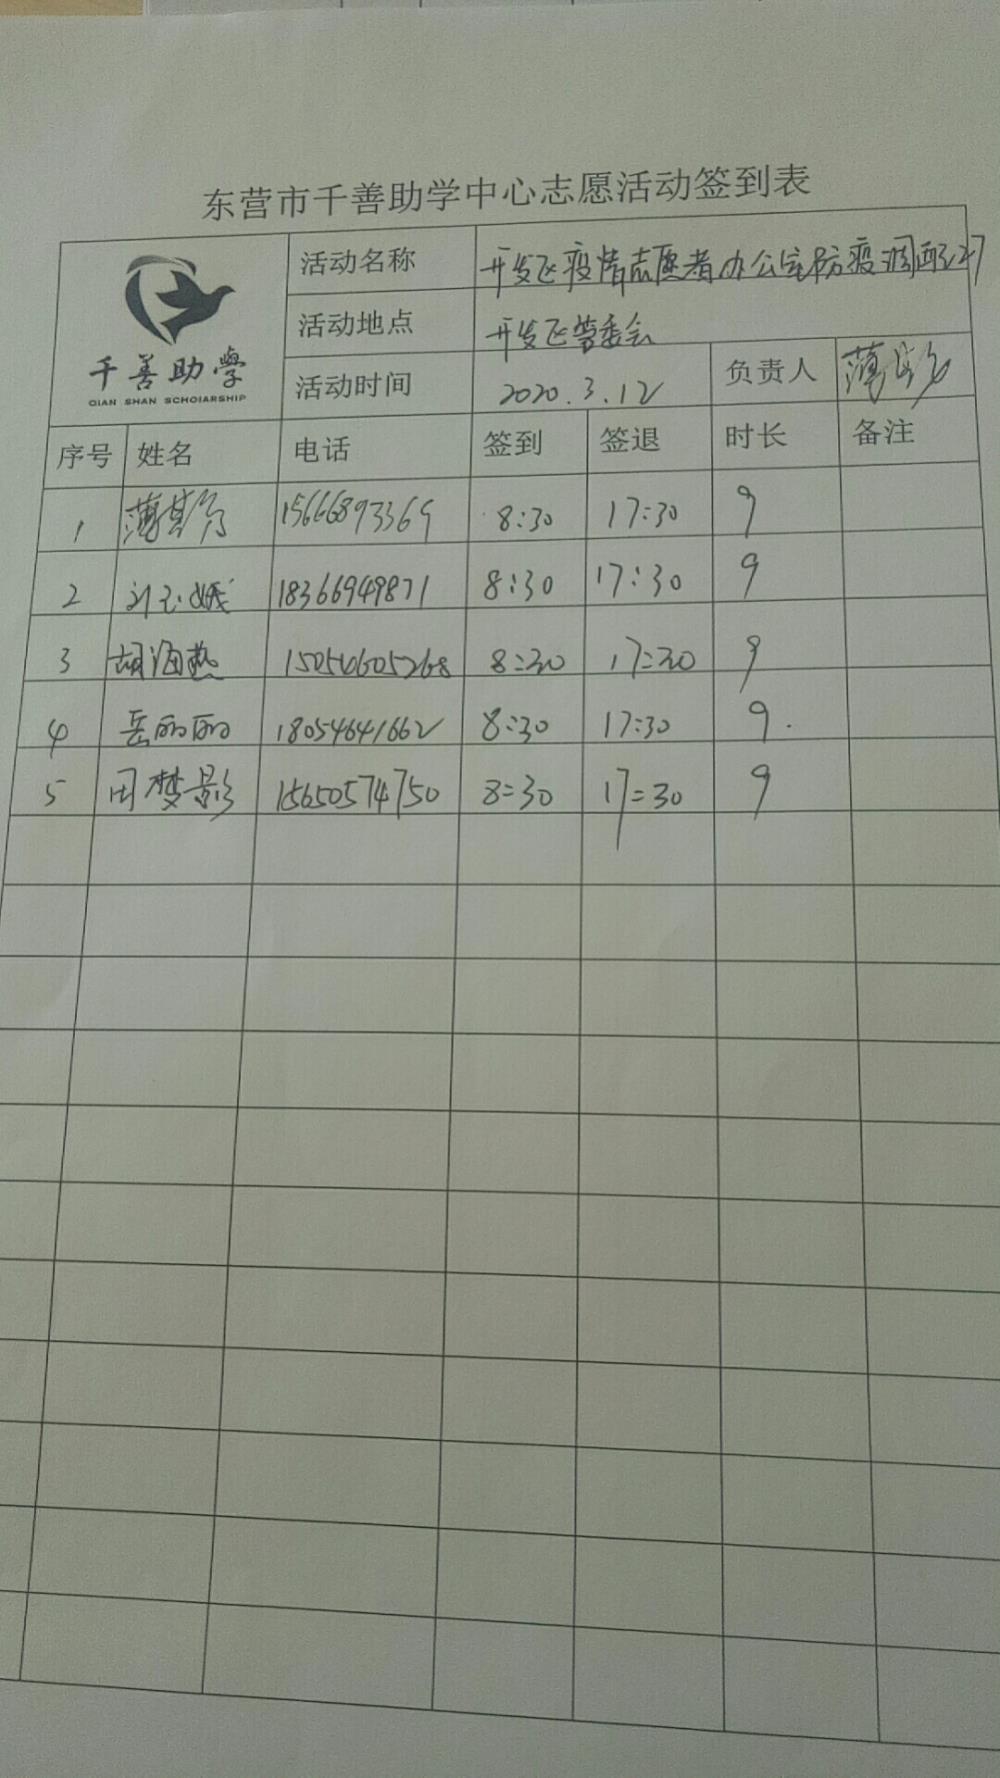 东营市千善助学中心志愿活动签到表
千善助學
QIAN SHAN SCHOIARSHIP
活动名称 开发区疫情志愿者办公室防疫调配
活动地点 开发区管委会
活动时间 2020.3.12 负责人 薄
序号 姓名 电话 签到 签退 时长 备注
1 薄其 15666893369 8:30 17:30 9
2 刘玉娥 18366949871 8:30 17:30 9
3 胡海燕 15054605268 8:30 17:30 9
4 岳丽丽 18054641662 8:30 17:30 9.
5 田梦影 15650574750 8:30 17:30 9